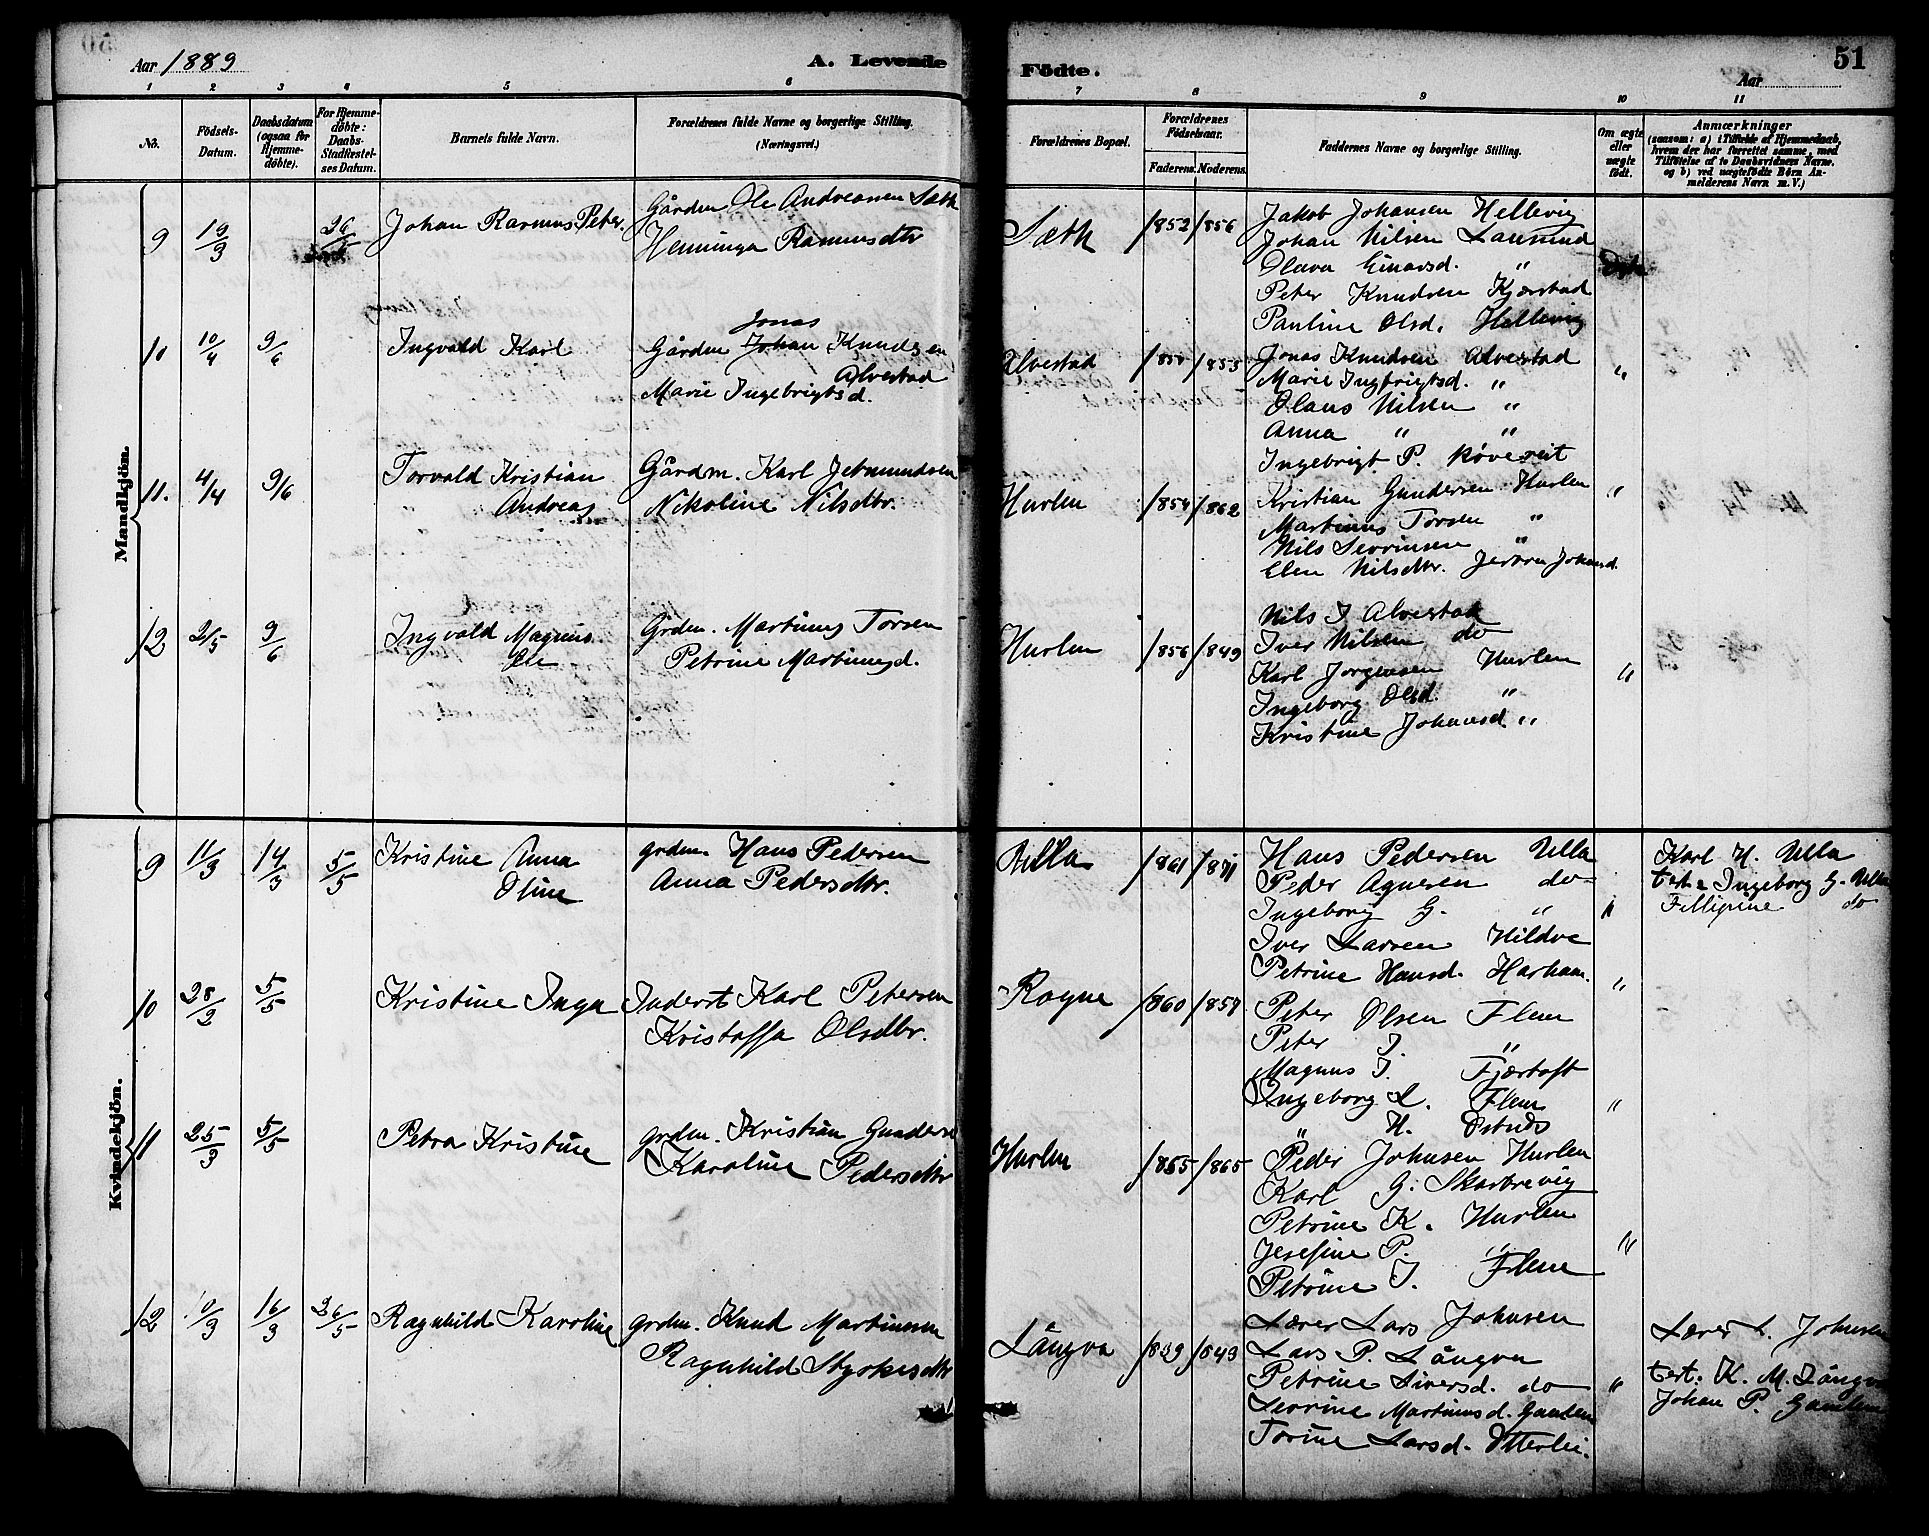 Aar 1889
A. Levende
Födte.
51
Aar
1 2 3 4 5 6 7 8 9 10 11
No.
Födsels-Datum.
Daabsdatum (ogsaa for Hjemmedöbte).
For Hjemmedöbte: Daabs-Stadfæstelses Datum.
Barnets fulde Navn.
Forældrenes fulde Navne og borgerlige Stilling. (Næringsvei.)
Forældrenes Bopæl.
Forældrenes Födselsaar.
Faderens. Moderens.
Faddernes Navne og borgerlige Stilling.
Om ægte eller uægte födt.
Anmærkninger
(saasom: a) i Tilfælde af Hjemmedaab, hvem der har forrettet samme, med Tilföielse af to Daabsvidners Navne. og b) ved uægtefödte Börn Anmelderens Navn m. V.)
Mandkjön.
9 19/3 26/5 Johan Rasmus Peter.
Gården Ole Andreassen Sæth
Henninga Rasmusdtr
Sæth 1852 1856
Jakob Johansen Hellevig
Johan Nilsen Lausund
Olava Einarsd. "
Peter Knudsen Kjerstad
Pauline Olsd. Hellevig
10 10/4 9/6 Ingvald Karl
Jonas
Gården Johan Knudsen
Alvestad
Marie Ingebrigtsd.
Alvestad 1853
Jonas Knudsen Alvestad "
Marie Ingbrigtsd. "
Olaus Nilsen "
Anna " "
Ingebrigt P.
11. 4/4 9/6 Torvald Kristian
Andreas
Gårdm. Karl Jetmundsen
Nikoline Nilsdtr.
Hurlen 1854 1862
Kristian Gundersen Hurlen "
Martinus Torsen "
Nils Sevrinsen "
Elen Nilsdtr.
12 2/5 9/6 Ingvald Magnus
Ole
Grdm. Martinus Torsen
Petrine Martinusd.
Hurlen 1856 1849
Nils J Alvestad
Iver Nilsen do
Karl Jorgensen Hurlen "
Ingeborg Olsd. "
Kristine Johansd "
Kvindekjön.
9 11/3 14/3 5/5 Kristine Anna
Oline
grdm. Hans Pedersen
Anna Pedersdtr.
Ulla 1861
Hans Pedersen Ulla
Peder Agnesen do
Ingeborg G. " "
Iver Larsen Hildre
Petrine Hansd. Harham.
Karl H. Ulla
test: Ingeborg G. Ulla
Fillipine do
10 5/5 Kristine Inga
Inderst Karl Petersen
Kristoffa Olsdtr.
Rogne 1860 1859 "
Peter Olsen Flem
Peter J. "
Magnus J. Fjærtoft
Ingeborg L. Flem
" H. Østnes
11 25/3 5/5 Petra Kristine
grdm. Kristian Gunders
Karoline Pedersdtr
Hurlen 1855 1865 "
Peder Johnsen Hurlen
Karl G. Skarbrevig
Petrine K. Hurlen
Josefine P. "
Petrine J. Flem
12 10/3 16/3 26/5 Ragnhild Karoline
grdm. Knud Martinussen
Ragnhild Styrkersdtr
Långva 1839 1843
Lærer Lars Johnsen
Lars P. Långva
Petrine Siversd. do "
Sevrine Martinusd. Gamlem
Torine Larsd. Otterlei.
Lærer L. Johnsen
test: K. M. Långva
Johan P. Gamlem